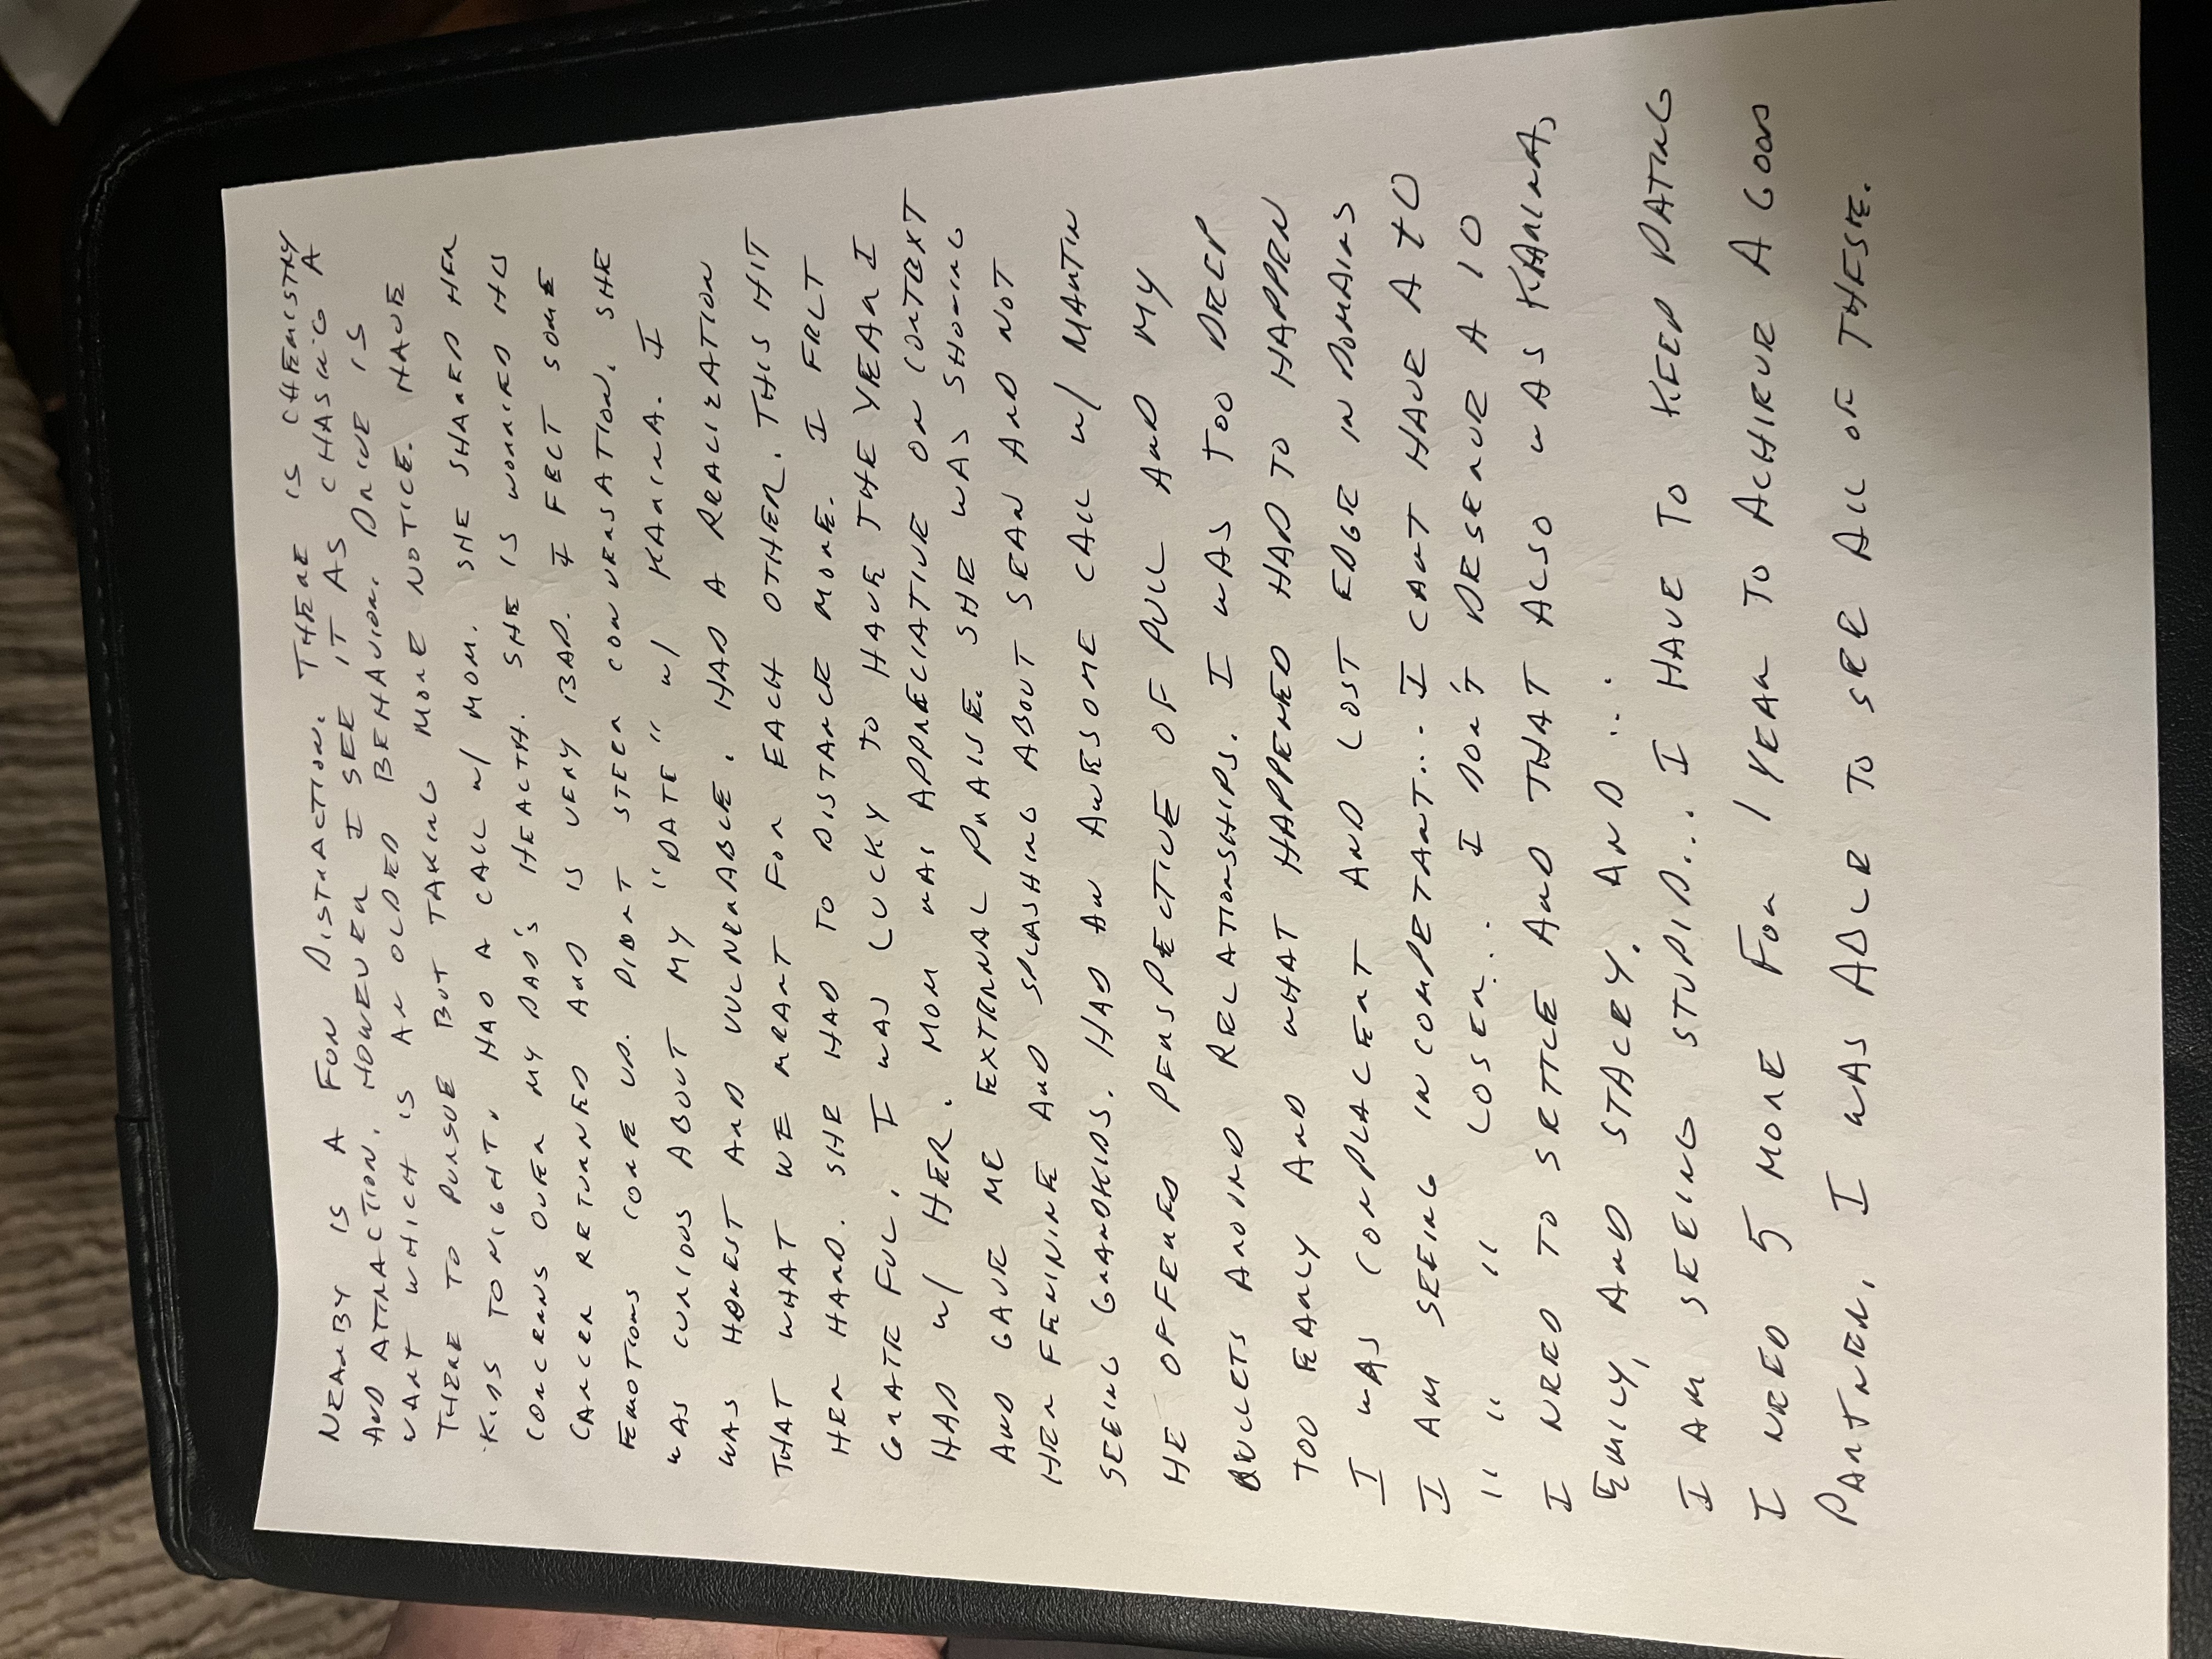 NEARBY IS A FUN DISTRACTION. THERE IS CHEMISTRY
AND ATTRACTION. HOWEVER I SEE IT AS CHASING A
WANT WHICH IS AN OLDER BEHAVIOR. DRIVE IS
THERE TO PURSUE BUT TAKING MORE NOTICE. HAVE
KIDS TONIGHT. HAD A CALL W/ MOM. SHE SHARED HER
CONCERNS OVER MY DAD'S HEALTH. SHE IS WORRIED HIS
CANCER RETURNED AND IS VERY BAD. I FELT SOME
EMOTIONS COME UP. DIDNT STEER CONVERSATION. SHE
WAS CURIOUS ABOUT MY "DATE" W/ KARINA. I
WAS HONEST AND VULNERABLE. HAD A REALIZATION
THAT WHAT WE MEANT FOR EACH OTHER. THIS HIT
HER HARD. SHE HAD TO DISTANCE MORE. I FELT
GRATEFUL. I WAS LUCKY TO HAVE THE YEAR I
HAD W/ HER. MOM WAS APPRECIATIVE ON CONTEXT
AND GAVE ME EXTERNAL PRAISE. SHE WAS SHOWING
HER FEMININE AND SPLASHING ABOUT SEAN AND NOT
SEEING GRANDKIDS. HAD AN AWESOME CALL W/ MARTIN
HE OFFERED PERSPECTIVE OF PULL AND MY
BULLETS AROUND RELATIONSHIPS. I WAS TOO DEEP
TOO EARLY AND WHAT HAPPENED HAD TO HAPPEN
I WAS COMPLACENT AND LOST EDGE IN DOMAINS
I AM SEEING INCOMPETANT... I CANT HAVE A 10
" " " LOSER... I DON'T DESERVE A 10
I NEED TO SETTLE AND THAT ALSO WAS KARINA,
EMILY, AND STACEY. AND...
I AM SEEING STUPID... I HAVE TO KEEP DATING
I NEED 5 MORE FOR 1 YEAR TO ACHIEVE A GOOD
PARTNER. I WAS ABLE TO SEE ALL OF THESE.